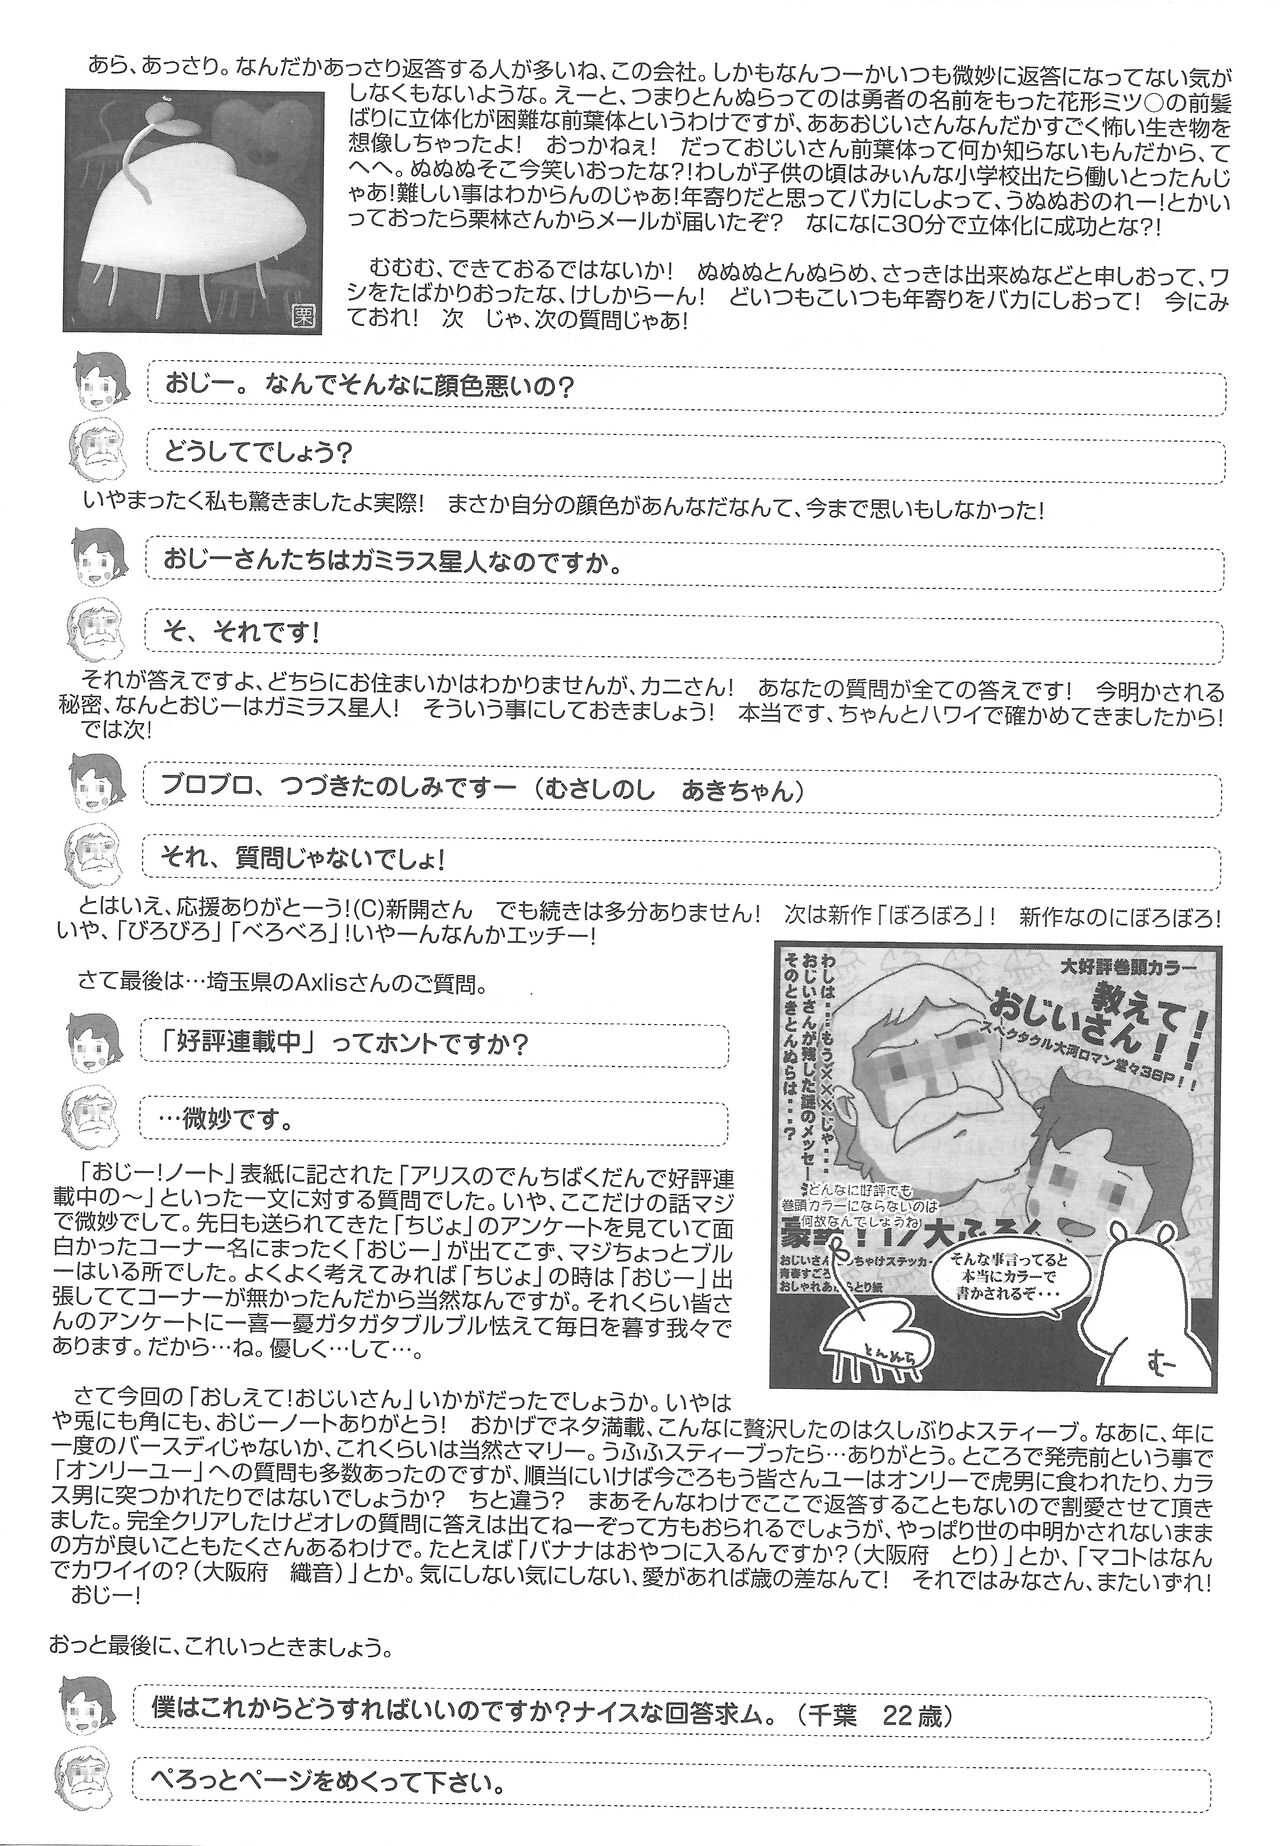 あら、あっさり。なんだかあっさり返答する人が多いね、この会社。しかもなんつーかいつも微妙に返答になってない気が
しなくもないような。えーと、つまりとんぬらってのは勇者の名前をもった花形ミツ○の前髪
ばりに立体化が困難な前葉体というわけですが、ああおじいさんなんだかすごく怖い生き物を
想像しちゃったよ!　おっかねぇ!　だっておじいさん前葉体って何か知らないもんだから、て
へへ。ぬぬぬそこ今笑いおったな?!わしが子供の頃はみぃんな小学校出たら働いとったんじ
ゃあ!難しい事はわからんのじゃあ!年寄りだと思ってバカにしよって、うぬぬおのれー!とかい
っておったら栗林さんからメールが届いたぞ?　なになに30分で立体化に成功とな?!
栗
むむむ、できておるではないか!　ぬぬぬとんぬらめ、さっきは出来ぬなどと申しおって、ワ
シをたばかりおったな、けしからーん!　どいつもこいつも年寄りをバカにしおって!　今にみ
ておれ!　次　じゃ、次の質問じゃあ!
おじー。なんでそんなに顔色悪いの?
どうしてでしょう?
いやまったく私も驚きましたよ実際!　まさか自分の顔色があんなだなんて、今まで思いもしなかった!
おじーさんたちはガミラス星人なのですか。
そ、それです!
それが答えですよ、どちらにお住まいかはわかりませんが、カニさん!　あなたの質問が全ての答えです!　今明かされる
秘密、なんとおじーはガミラス星人!　そういう事にしておきましょう!　本当です、ちゃんとハワイで確かめてきましたから!
では次!
ブロブロ、つづきたのしみですー（むさしのし　あきちゃん）
それ、質問じゃないでしょ!
とはいえ、応援ありがとーう!(C)新開さん　でも続きは多分ありません!　次は新作「ぼろぼろ」!　新作なのにぼろぼろ!
いや、「びろびろ」「べろべろ」!いやーんなんかエッチー!
さて最後は…埼玉県のAxlisさんのご質問。
「好評連載中」ってホントですか?
…微妙です。
「おじー!ノート」表紙に記された「アリスのでんちばくだんで好評連
載中の～」といった一文に対する質問でした。いや、ここだけの話マジ
で微妙でして。先日も送られてきた「ちじょ」のアンケートを見ていて面
白かったコーナー名にまったく「おじー」が出てこず、マジちょっとブル
ーはいる所でした。よくよく考えてみれば「ちじょ」の時は「おじー」出
張しててコーナーが無かったんだから当然なんですが。それくらい皆さ
んのアンケートに一喜一憂ガタガタブルブル怯えて毎日を暮す我々で
あります。だから…ね。優しく…して…。
大好評巻頭カラー
教えて!
おじいさん!!
スペクタクル大河ロマン堂々38P!!
わしは…もう×××じゃ…
おじいさんが残した謎のメッセージ
そのときとんぬらは…?
どんなに好評でも
巻頭カラーにならないのは
何故なんでしょうね
そんな事言ってると
本当にカラーで
書かされるぞ・・・
とんぬら
むー
さて今回の「おしえて!おじいさん」いかがだったでしょうか。いやは
や兎にも角にも、おじーノートありがとう!　おかげでネタ満載、こんなに贅沢したのは久しぶりよスティーブ。なあに、年に
一度のバースディじゃないか、これくらいは当然さマリー。うふふスティーブったら…ありがとう。ところで発売前という事で
「オンリーユー」への質問も多数あったのですが、順当にいけば今ごろもう皆さんユーはオンリーで虎男に食われたり、カラ
ス男に突つかれたりではないでしょうか?　ちと違う?　まあそんなわけでここで返答することもないので割愛させて頂き
ました。完全クリアしたけどオレの質問に答えは出てねーぞって方もおられるでしょうが、やっぱり世の中明かされないまま
の方が良いこともたくさんあるわけで。たとえば「バナナはおやつに入るんですか?（大阪府　とり）」とか、「マコトはなん
でカワイイの?（大阪府　織音）」とか。気にしない気にしない、愛があれば歳の差なんて!　それではみなさん、またいずれ!
おじー!
おっと最後に、これいっときましょう。
僕はこれからどうすればいいのですか?ナイスな回答求ム。（千葉　22歳）
ぺろっとページをめくって下さい。